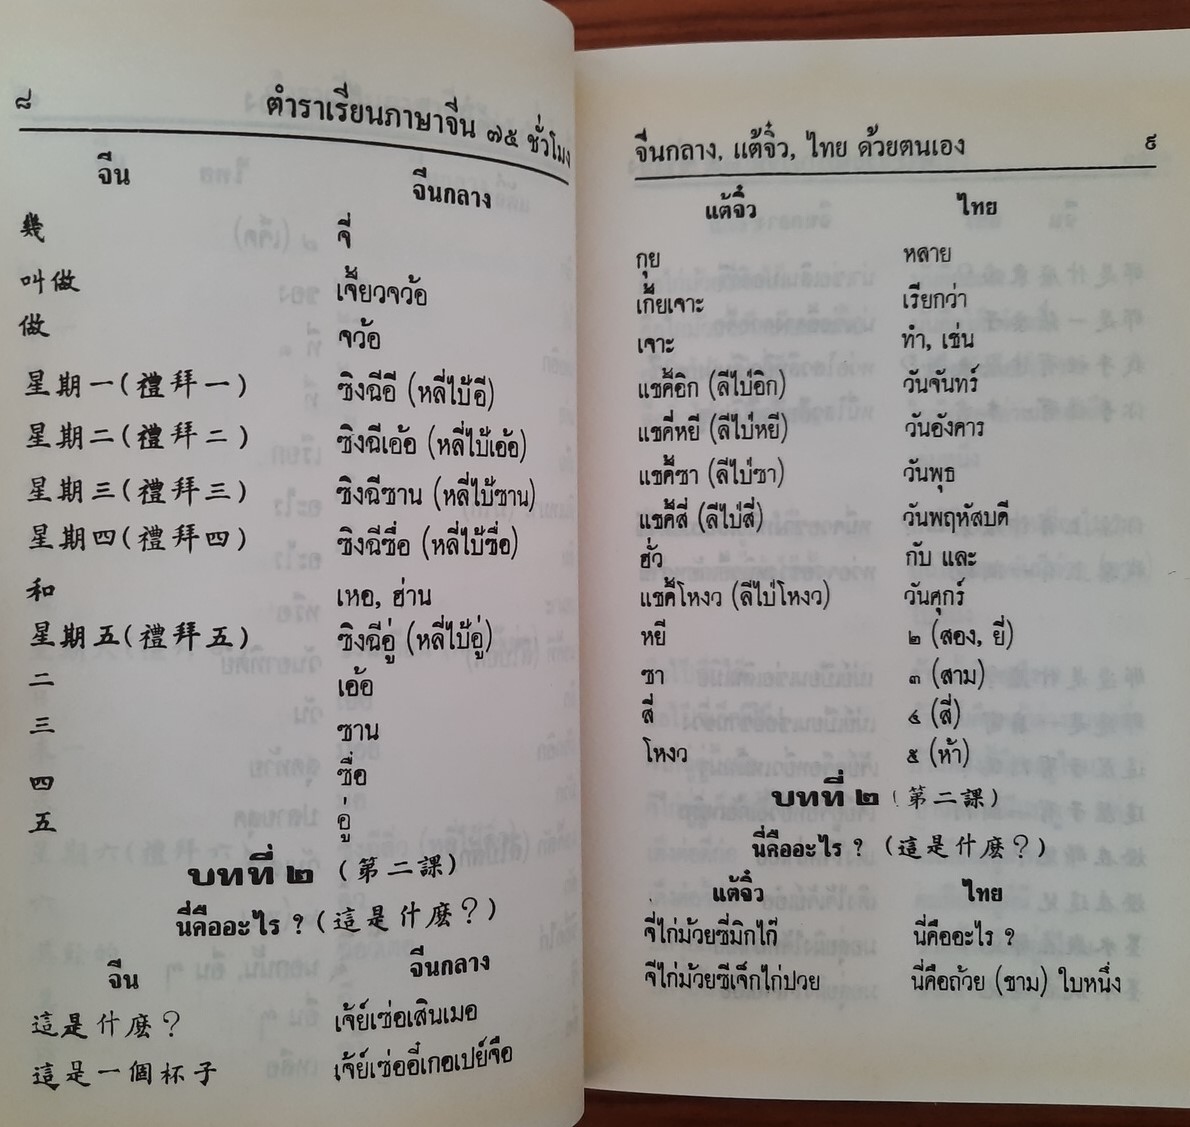 ๘
ตำราเรียนภาษาจีน ๗๕ ชั่วโมง
จีน จีนกลาง
幾 จี่
叫做 เจี้ยวจว้อ
做 จว้อ
星期一(禮拜一) ซิงฉีอี (หลี่ไป้อี)
星期二(禮拜二) ซิงฉีเอ้อ (หลี่ไป้เอ้อ)
星期三(禮拜三) ซิงฉีซาน (หลี่ไป้ซาน)
星期四(禮拜四) ซิงฉีซื่อ (หลี่ไป้ซื่อ)
和 เหอ, ฮ่าน
星期五(禮拜五) ซิงฉีอู่ (หลี่ไป้อู่)
二 เอ้อ
三 ซาน
四 ซื่อ
五 อู่
บทที่ ๒ (第二課)
นี่คืออะไร ? (這是什麼?)
จีน จีนกลาง
這是什麼? เจ้ย์เซ่อเสินเมอ
這是一個杯子 เจ้ย์เซ่ออี๋เกอเปย์จือ
จีนกลาง, แต้จิ๋ว, ไทย ด้วยตนเอง ๙
แต้จิ๋ว ไทย
กุย หลาย
เกี้ยเจาะ เรียกว่า
เจาะ ทำ, เช่น
แชคี้อิก (ลีไป่อิก) วันจันทร์
แชคี่หยี (ลีไป่หยี) วันอังคาร
แชคี้ซา (ลีไป่ซา) วันพุธ
แชคี้สี่ (ลีไป่สี่) วันพฤหัสบดี
ฮั่ว กับ และ
แชคี้โหงว (ลีไป่โหงว) วันศุกร์
หยี ๒ (สอง, ยี่)
ซา ๓ (สาม)
สี่ ๔ (สี่)
โหงว ๕ (ห้า)
บทที่ ๒ (第二課)
นี่คืออะไร ? (這是什麼?)
แต้จิ๋ว ไทย
จี่ไก่ม้วยซี่มิกไก๊ นี่คืออะไร ?
จีไก่ม้วยซีเจ็กไก่ปวย นี่คือถ้วย (ชาม) ใบหนึ่ง